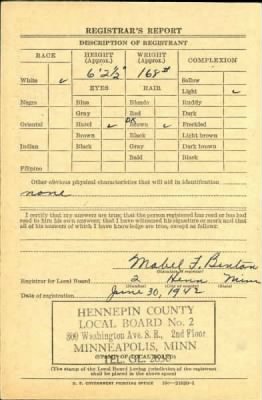 REGISTRAR'S REPORT
DESCRIPTION OF REGISTRANT
RACE HEIGHT (Approx.) WEIGHT (Approx.) COMPLEXION
6' 2½" 168#
White ✓ EYES HAIR Sallow
Light ✓
Negro Blue Blonde Ruddy
Gray Red Dark
Oriental Hazel ✓ DK Brown ✓ Freckled
Brown Black Light brown
Indian Black Gray Dark brown
Bald Black
Filipino
Other obvious physical characteristics that will aid in identification
none
I certify that my answers are true; that the person registered has read or has had
read to him his own answers; that I have witnessed his signature or mark and that
all of his answers of which I have knowledge are true, except as follows:
Mabel F. Benton
(Signature of registrar)
Registrar for Local Board 2 Henn Minn
(Number) (City or county) (State)
Date of registration June 30, 1942
HENNEPIN COUNTY
LOCAL BOARD No. 2
800 Washington Ave. S. E., 2nd Floor
MINNEAPOLIS, MINN
(STAMP OF LOCAL BOARD)
TEL. GL. 2636
(The stamp of the Local Board having jurisdiction of the registrant
shall be placed in the above space)
U. S. GOVERNMENT PRINTING OFFICE